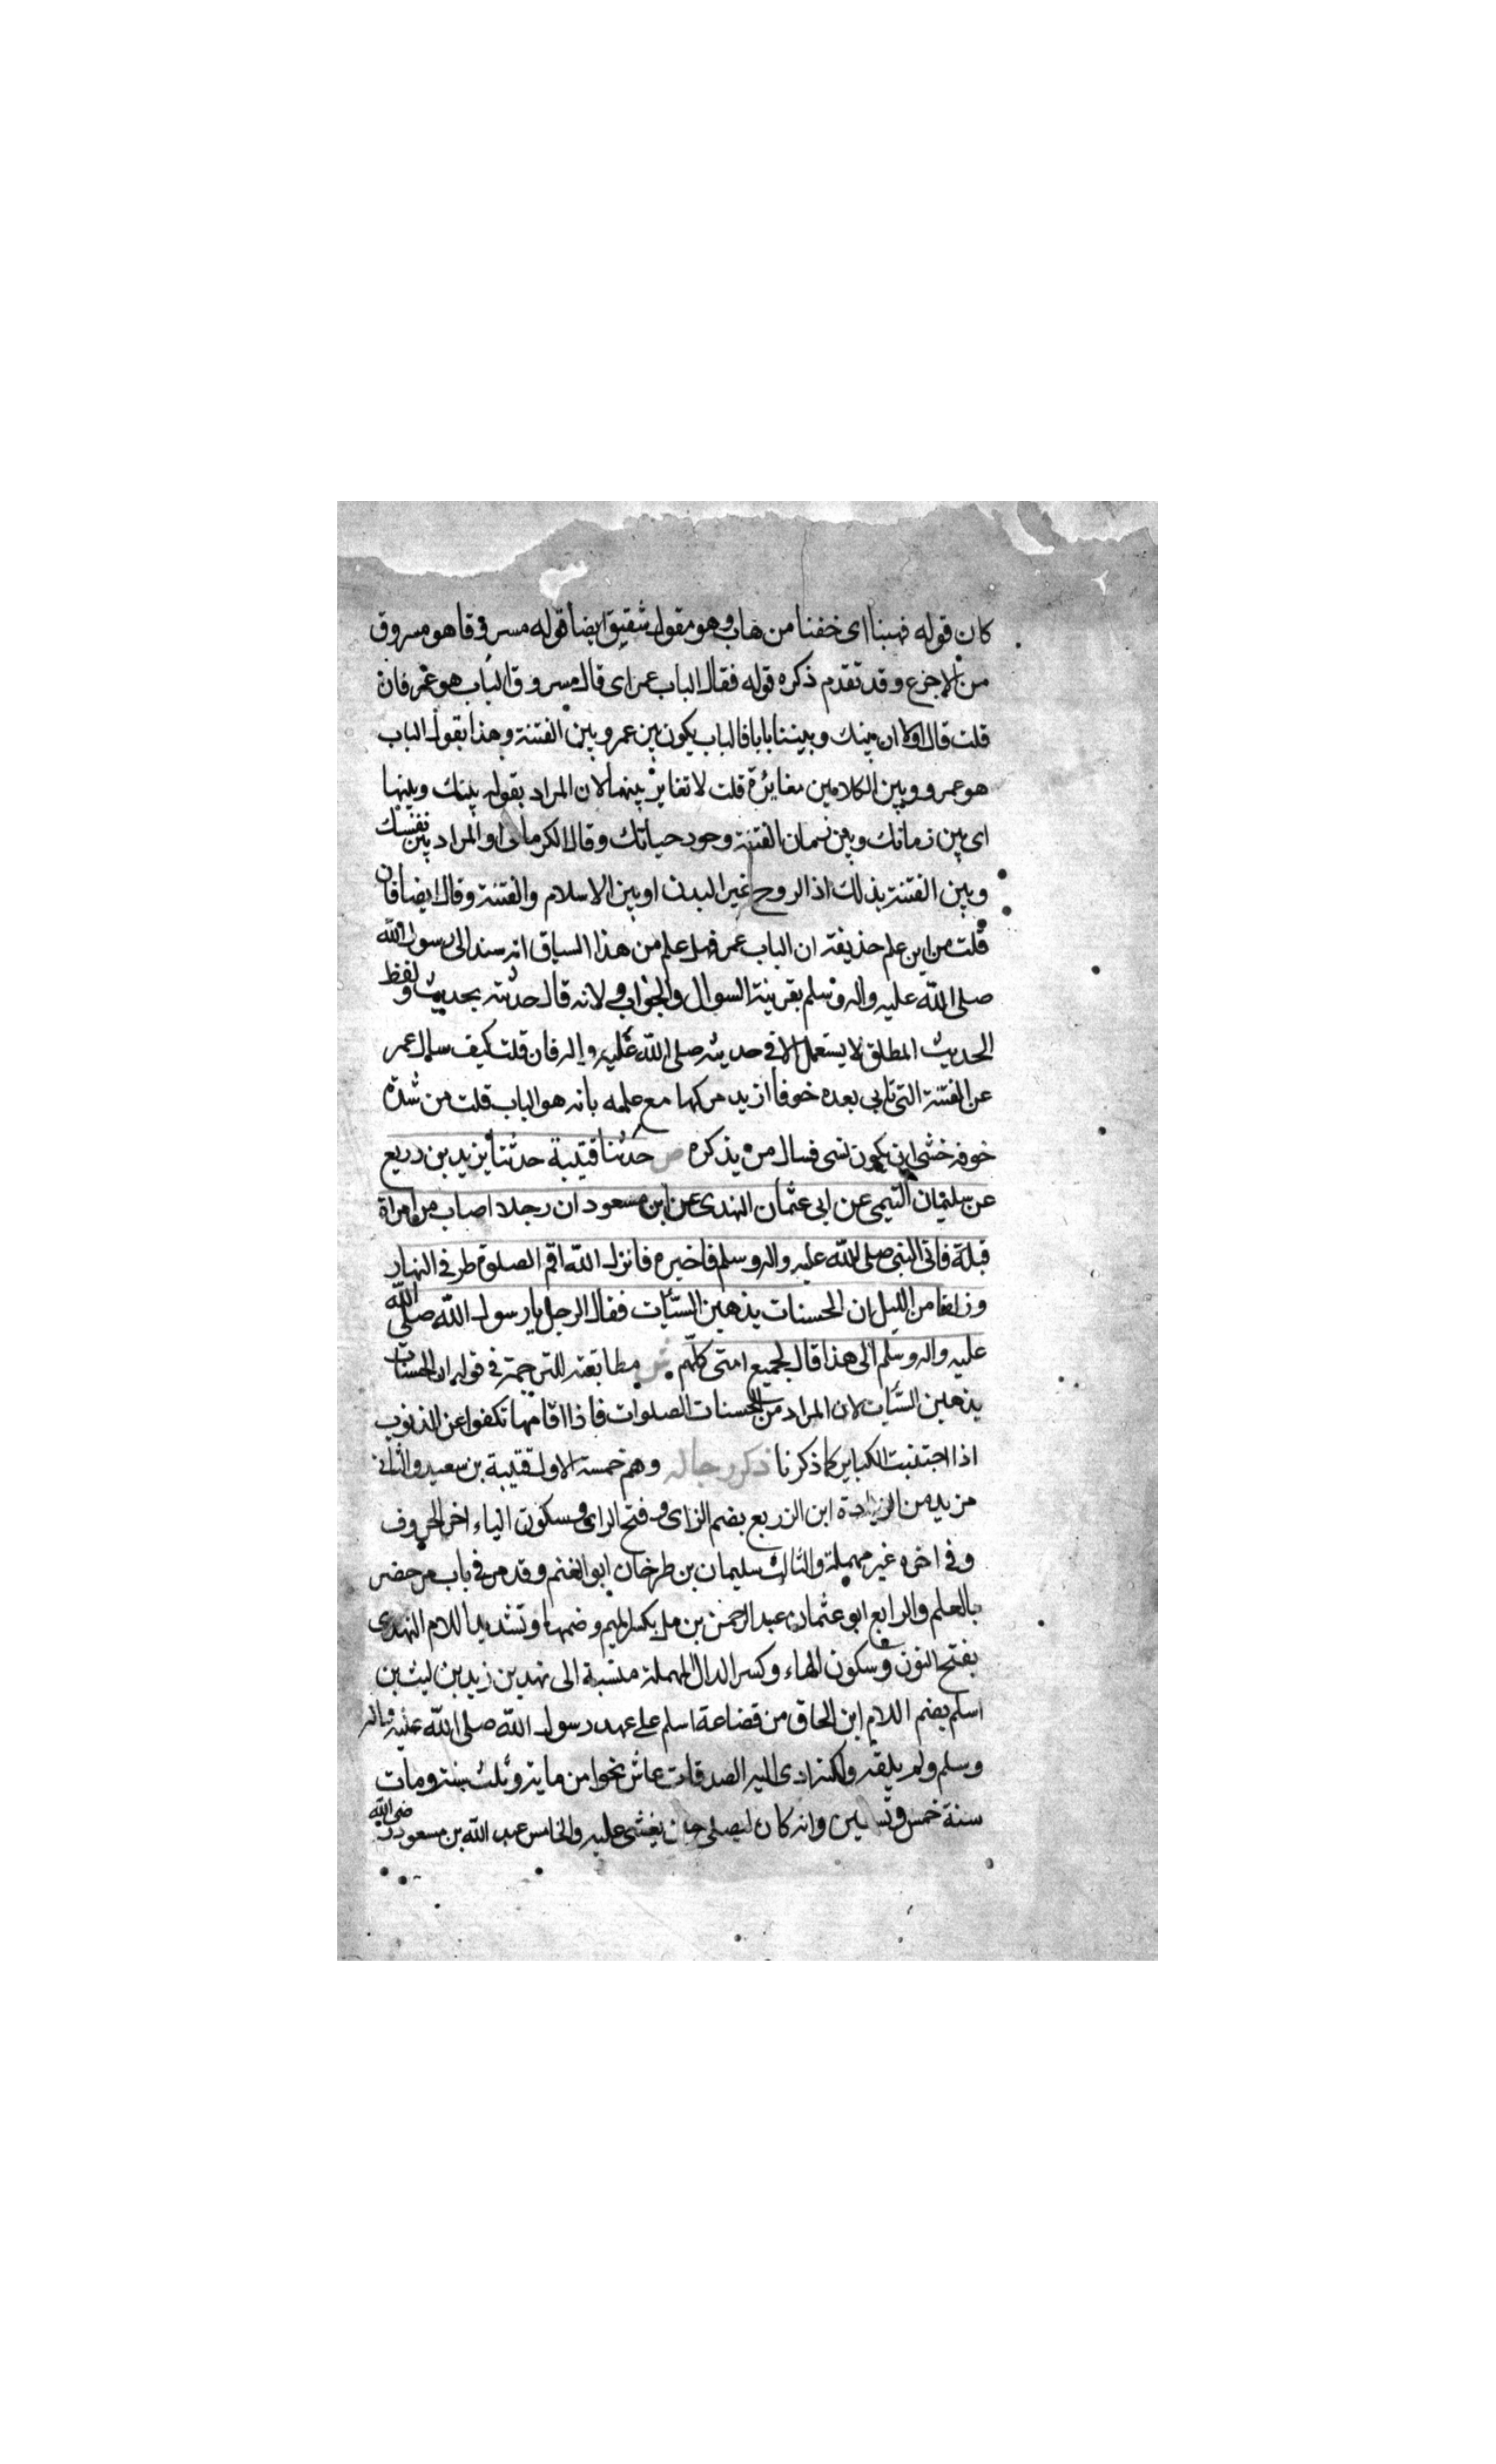 كان قوله فهبنا اى خفنا من هاب وهو مقول شقيق ايضا قوله مسروقا هو مسروق
من الاجزع وقد تقدم ذكره قوله فقال الباب عمر اى قال مسروق الباب هو عمر فان
قلت قال اولا ان بينك وبيننا بابا فالباب يكون بين عمر وبين الفتنة وهذا بقول الباب
هو عمر ووبين الكلامين مغايرة قلت لا تغاير بينهما لان المراد بقوله بينك وبينها
اى بين زمانك وبين زمان الفتنة وجود حياتك وقال الكرمانى او المراد بين نفسك
وبين الفتنة بذلك اذ الروح غير البدن او بين الاسلام والفتنة وقال ايضا فان
قلت من اين علم حذيفة ان الباب عمر فهل علم من هذا السياق انه سند الى رسول الله
صلى الله عليه واله وسلم بقرينة السوال والجواب ولانه قال حدثته بحديث ولفظ
الحديث المطلق لا يستعمل الا فى حديثه صلى الله عليه واله فان قلت كيف سال عمر
عن الفتنة التى تاتى بعده خوفا ان يدركها مع علمه بانه هو الباب قلت من شدة
خوفه خشى ان يكون نسى فسال من يذكره ص حدثنا قتيبة حدثنا يزيد بن زريع
عن سليمان التيمى عن ابى عثمان النهدى عن ابن مسعود ان رجلا اصاب من امراة
قبلة فاتى النبى صلى الله عليه واله وسلم فاخبره فانزل الله اقم الصلوة طرفى النهار
وزلفا من الليل ان الحسنات يذهبن السيئات فقال الرجل يا رسول الله صلى الله
عليه واله وسلم الى هذا قال لجميع امتى كلهم ش مطابقته للترجمة فى قوله ان الحسنات
يذهبن السيئات لان المراد من الحسنات الصلوات فاذا اقامها تكفوا عن الذنوب
اذا اجتنبت الكباير كما ذكرنا ذكر رجاله وهم خمسة الاول قتيبة بن سعيد والثانى
مزيد من الزيادة ابن الزريع بضم الزاى وفتح الراى وسكون الياء اخر الحروف
وفى اخره غير مهملة والثالث سليمان بن طرخان ابو الغنم وقد مر فى باب من حضر
بالعلم والرابع ابو عثمان عبد الرحمن بن مل بكسر الميم وضمها وتشديد اللام النهدى
بفتح النون وسكون الهاء وكسر الدال المهملة منسبة الى نهد بن زيد بن ليث بن
اسلم بضم اللام ابن الحاق من قضاعة اسلم على عهد رسول الله صلى الله عليه واله
وسلم ولم يلقه ولكنه ادى اليه الصدقات عاش نحوا من ماية وثلث سنة ومات
سنة خمس وتسعين وانه كان ليصلى حتى يغشى عليه والخامس عبد الله بن مسعود رضى الله